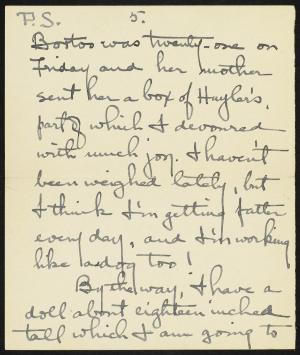 P.S. 5.
Bostoo was twenty-one on
Friday and her mother
sent her a box of Huyler's,
part of which I devoured
with much joy. I haven't
been weighed lately, but
I think I'm getting fatter
every day, and I'm working
like a dog too!
By the way, I have a
doll about eighteen inches
tall which I am going to